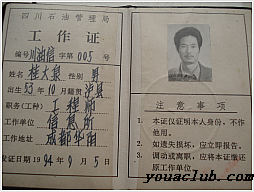 四川石油管理局
工作证
编号 川油信 字第 005 号
姓名 桂大泉 性别 男
出生 55年10月 籍贯 泸县
职务(工种) 工程师
工作单位 信息所
工作地址 成都华阳
发证日期 1994年9月5日
注意事项
1. 本证仅证明本人身份,不作他用。
2. 如遗失损坏,应立即报告。
3. 调动或离职,应将本证缴还原工作机关。
youaclub.com